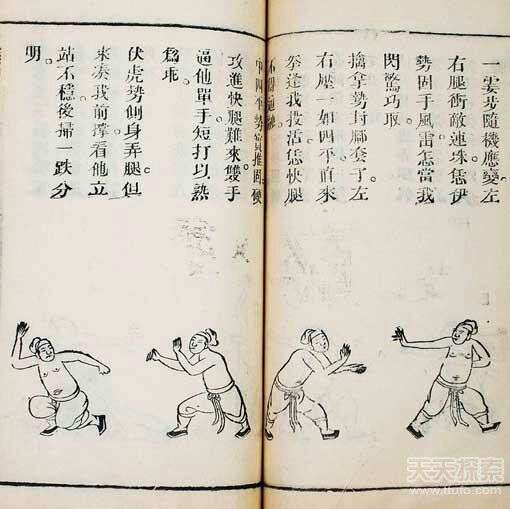 一霎步隨機應變。左
右腿衝敵連珠。恁伊
勢固手風雷。怎當我
閃驚巧取。
擒拿勢封脚套子。左
右壓一如四平。直來
拳逢我投活。恁快腿
不得通融。
中四平勢實推固。硬
攻進快腿難來。雙手
逼他單手。短打以熟
爲乖。
伏虎勢側身弄腿。但
來湊我前撐。看他立
站不穩。後掃一跌分
明。
天天探索
www.ttufo.com